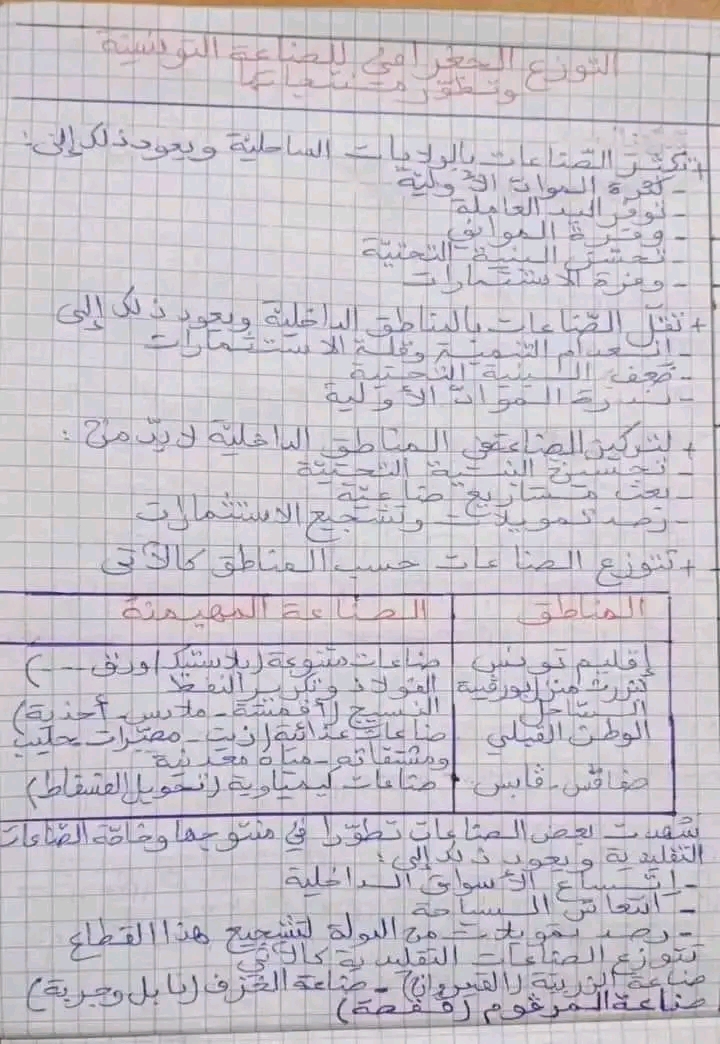 التوزع الجغرافي للصناعة التونسية
وتطور منتجاتها
+ تكثر الصناعات بالولايات الساحلية ويعود ذلك إلى:
- كثرة المواد الأولية
- توفر اليد العاملة
- وفرة الموانئ
- تحسن البنية التحتية
- وفرة الاستثمارات
+ تقل الصناعات بالمناطق الداخلية ويعود ذلك إلى
- انعدام التنمية وقلة الاستثمارات
- ضعف البنية التحتية
- ندرة المواد الأولية
+ لتركيز الصناعة في المناطق الداخلية لا بد من:
- تحسين البنية التحتية
- بعث مشاريع صناعية
- رصد تمويلات وتشجيع الاستثمارات
+ تتوزع الصناعات حسب المناطق كالآتي
المناطق | الصناعة المهيمنة
إقليم تونس | صناعات متنوعة (بلاستيك، ورق ---)
بنزرت منزل بورقيبة | الفولاذ وتكرير النفط
الساحل | النسيج (أقمشة - ملابس - أحذية)
الوطن القبلي | صناعات غذائية (زيت - مصبرات حليب
ومشتقاته - مياه معدنية
صفاقس - قابس | صناعات كيمياوية (تحويل الفسفاط)
شهدت بعض الصناعات تطورا في منتوجها وخاصة الصناعات
التقليدية ويعود ذلك إلى:
- إتساع الأسواق الداخلية
- انتعاش السياحة
- رصد تمويلات من الدولة لتشجيع هذا القطاع
تتوزع الصناعات التقليدية كالآتي
صناعة الزربية (القيروان) - صناعة الخزف (نابل وجربة)
صناعة المرقوم (قفصة)